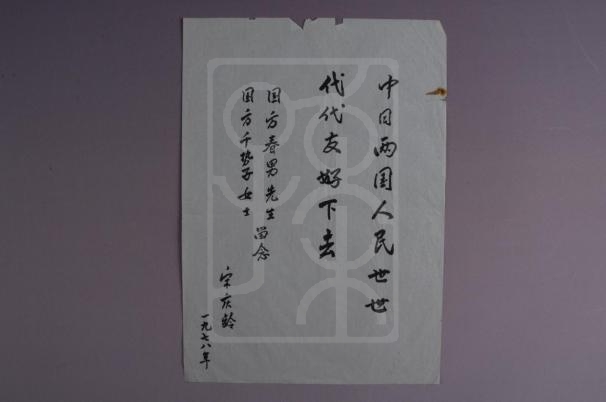 中日两国人民世世
代代友好下去
国方春男先生
国方千势子女士
留念
宋庆龄
一九七八年